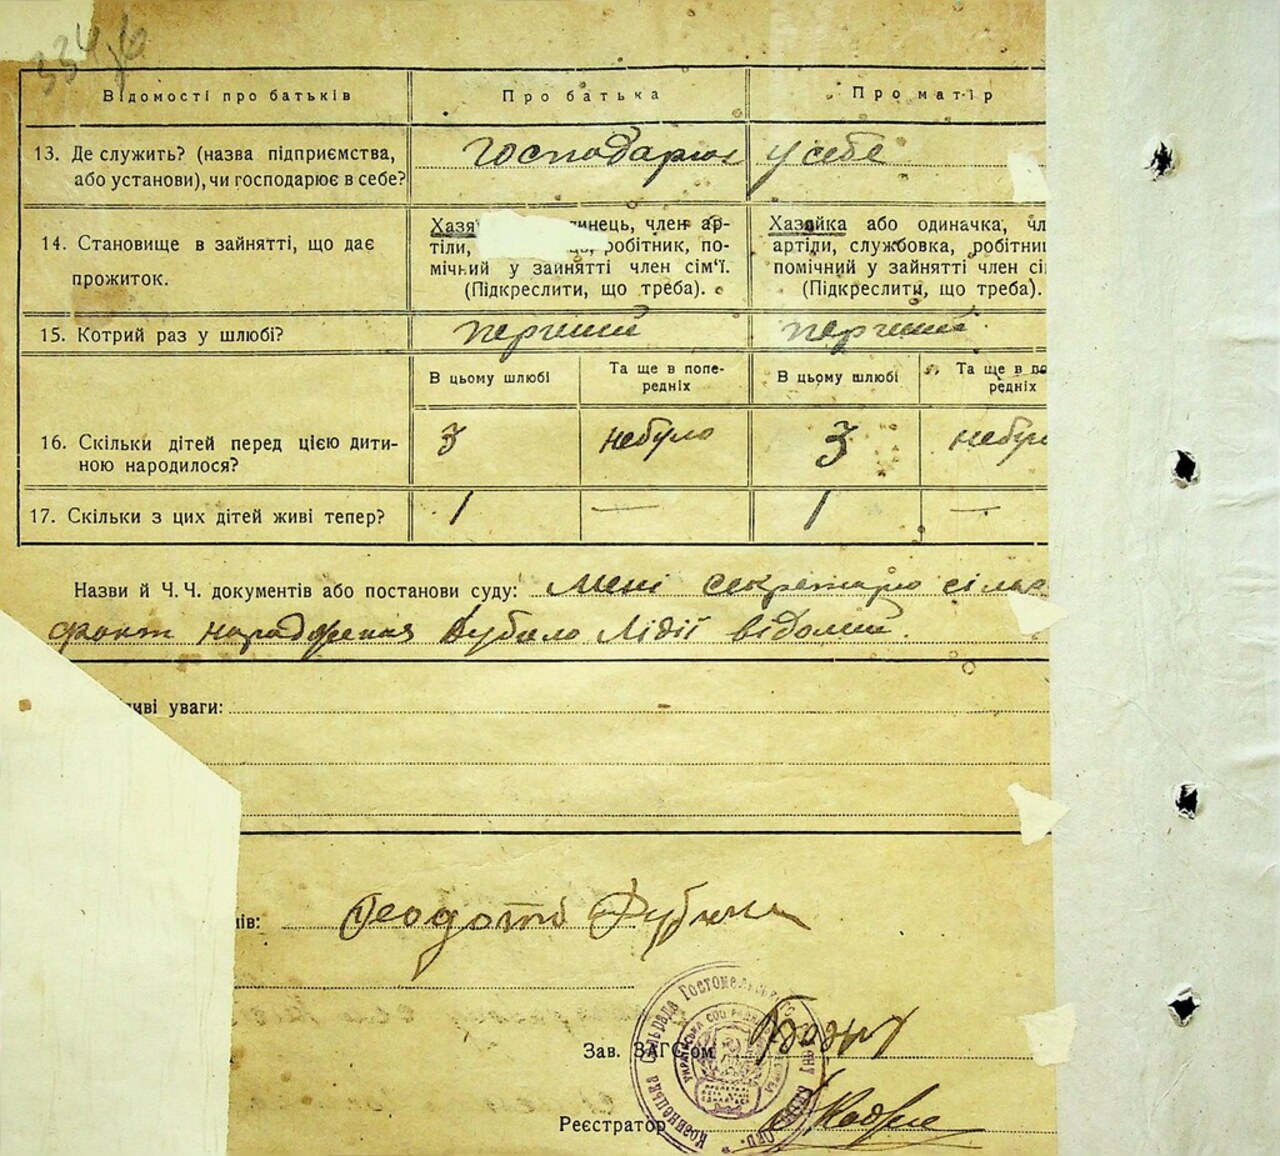 334/6
Відомості про батьків
Про батька
Про матір
13. Де служить? (назва підприємства,
або установи), чи господарює в себе?
господарює у себе
14. Становище в зайнятті, що дає
прожиток.
Хазя динець, член ар-
тіли, робітник, по-
мічний у зайнятті член сім'ї.
(Підкреслити, що треба).
Хазяйка або одиначка, чл
артіли, службовка, робітни
помічний у зайнятті член сі
(Підкреслити, що треба).
15. Котрий раз у шлюбі?
перший
перший
В цьому шлюбі
Та ще в попе-
редніх
В цьому шлюбі
Та ще в по
редніх
16. Скільки дітей перед цією дити-
ною народилося?
3
небуло
3
небул
17. Скільки з цих дітей живі тепер?
1
—
1
—
Назви й Ч. Ч. документів або постанови суду: Мені секретарю сіль
факт народження Лідії відомий.
иві уваги:
ів: Теодот
Зав. ЗАГСом
Реєстратор